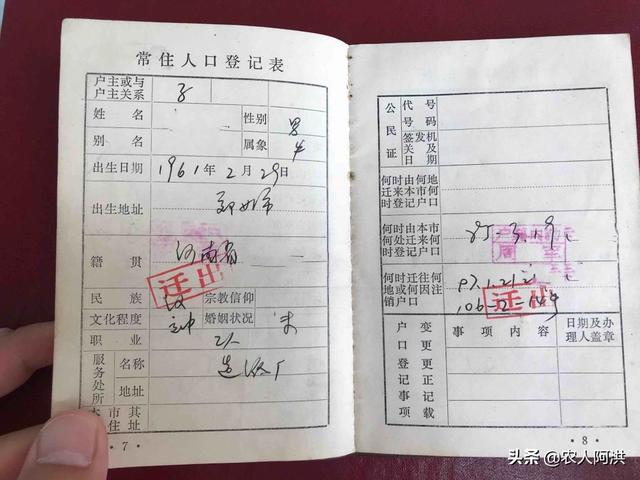 常住人口登记表
户主或与户主关系 子
姓名 性别 男
别名 属象 牛
出生日期 1961年2月29日
出生地址 郑州市
籍贯 河南省
迁出
民族 汉 宗教信仰
文化程度 初中 婚姻状况 未
职业 工人
服务处所 名称
地址
本市其 住址
·7·
公民证 代号号码
签发机关及日期
何时由何地迁来本市何时登记户口
何时由本市何处迁来何时登记户口 85-3.19
何时迁往何地或何因注销户口 87.1.21
迁出
户口登记事项 变更更正记载 事项内容 日期及办理人盖章
·8·
头条 @农人阿洪